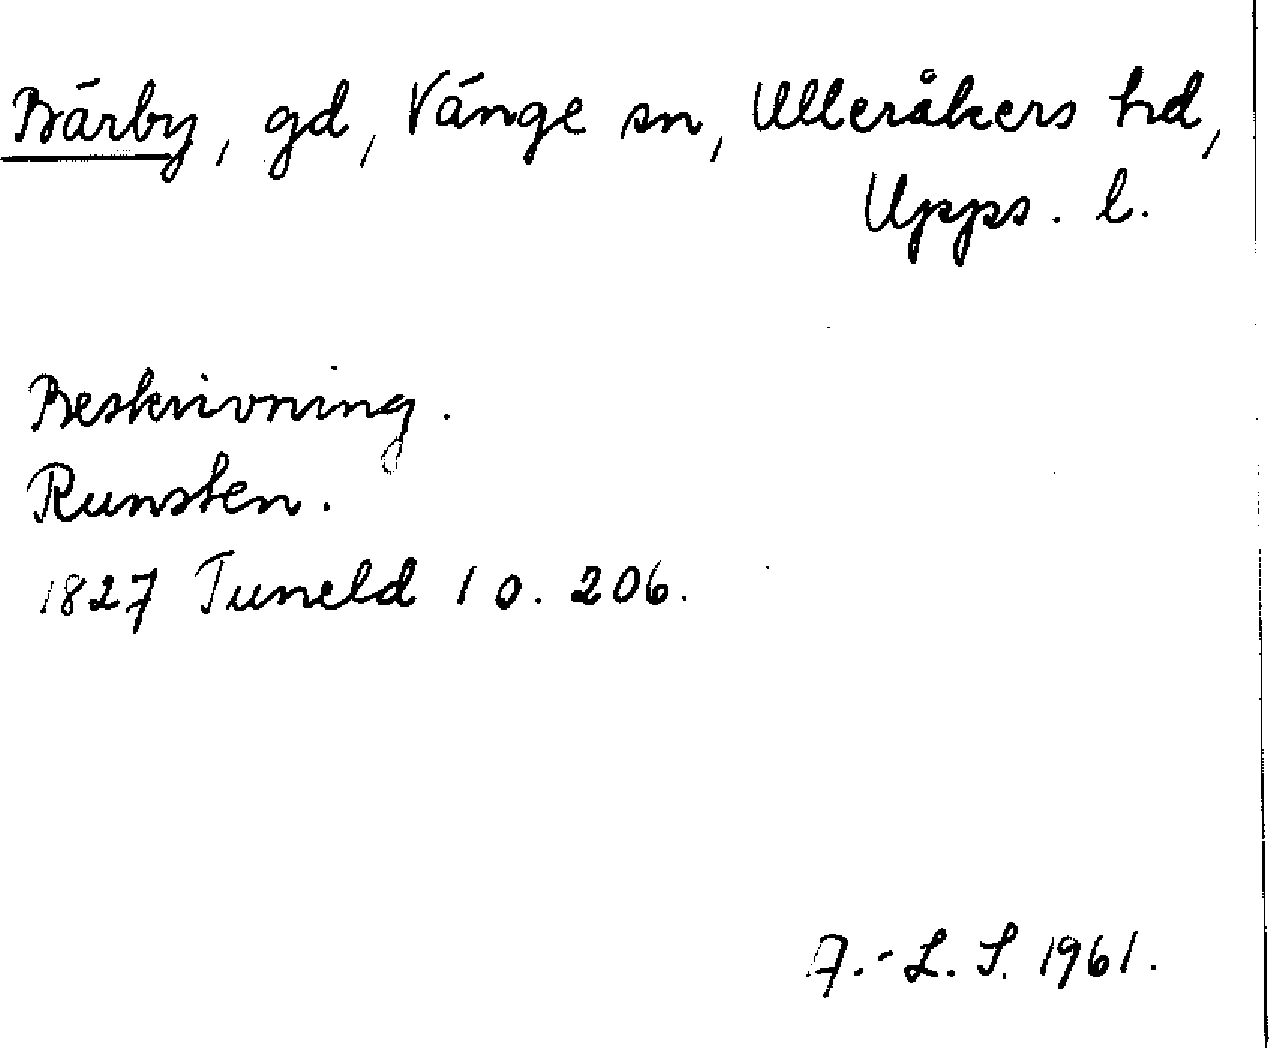 Bärby, gd, Vänge sn, Ulleråkers hd,
Upps. l.
Beskrivning.
Runsten.
1827 Tuneld 1 o. 206.
A.-L. S. 1961.